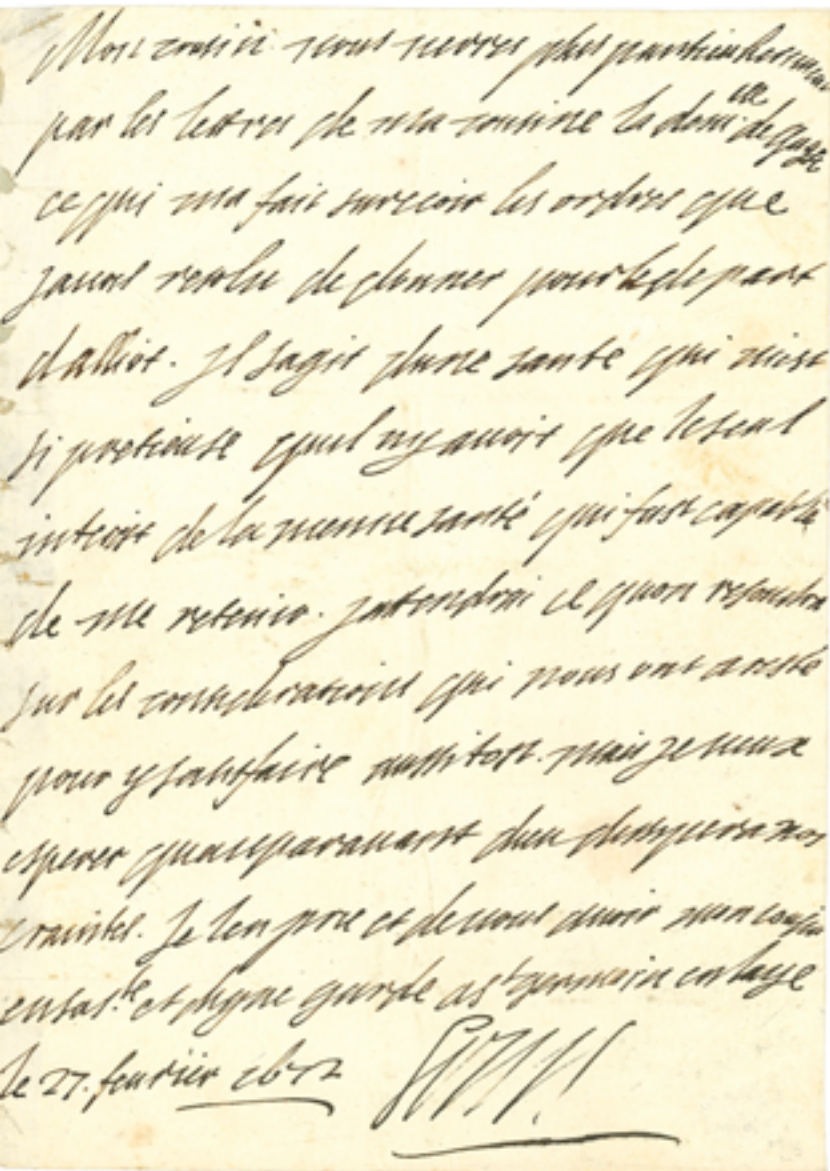 Mon cousin vous verres plus particulierement
par les lettres de ma cousine la dem^elle de guise
ce qui ma fait surceoir les ordres que
javois resolu de donner pour le depart
dalliot. Il sagit dune santé qui mest
si pretieuse quil ny avoit que le seul
interest de la mesme santé qui fust capable
de me retenir. jattendrai ce quon resoudra
sur les considerations qui nous ont aresté
pour y satisfaire aussitost. mais je veux
esperer quauparavant dieu dissipera nos
craintes. Je len prie et de vous avoir mon cousin
en sa s.te et digne garde a s^t germain en laye
le 27. fevrier 1672 Louis